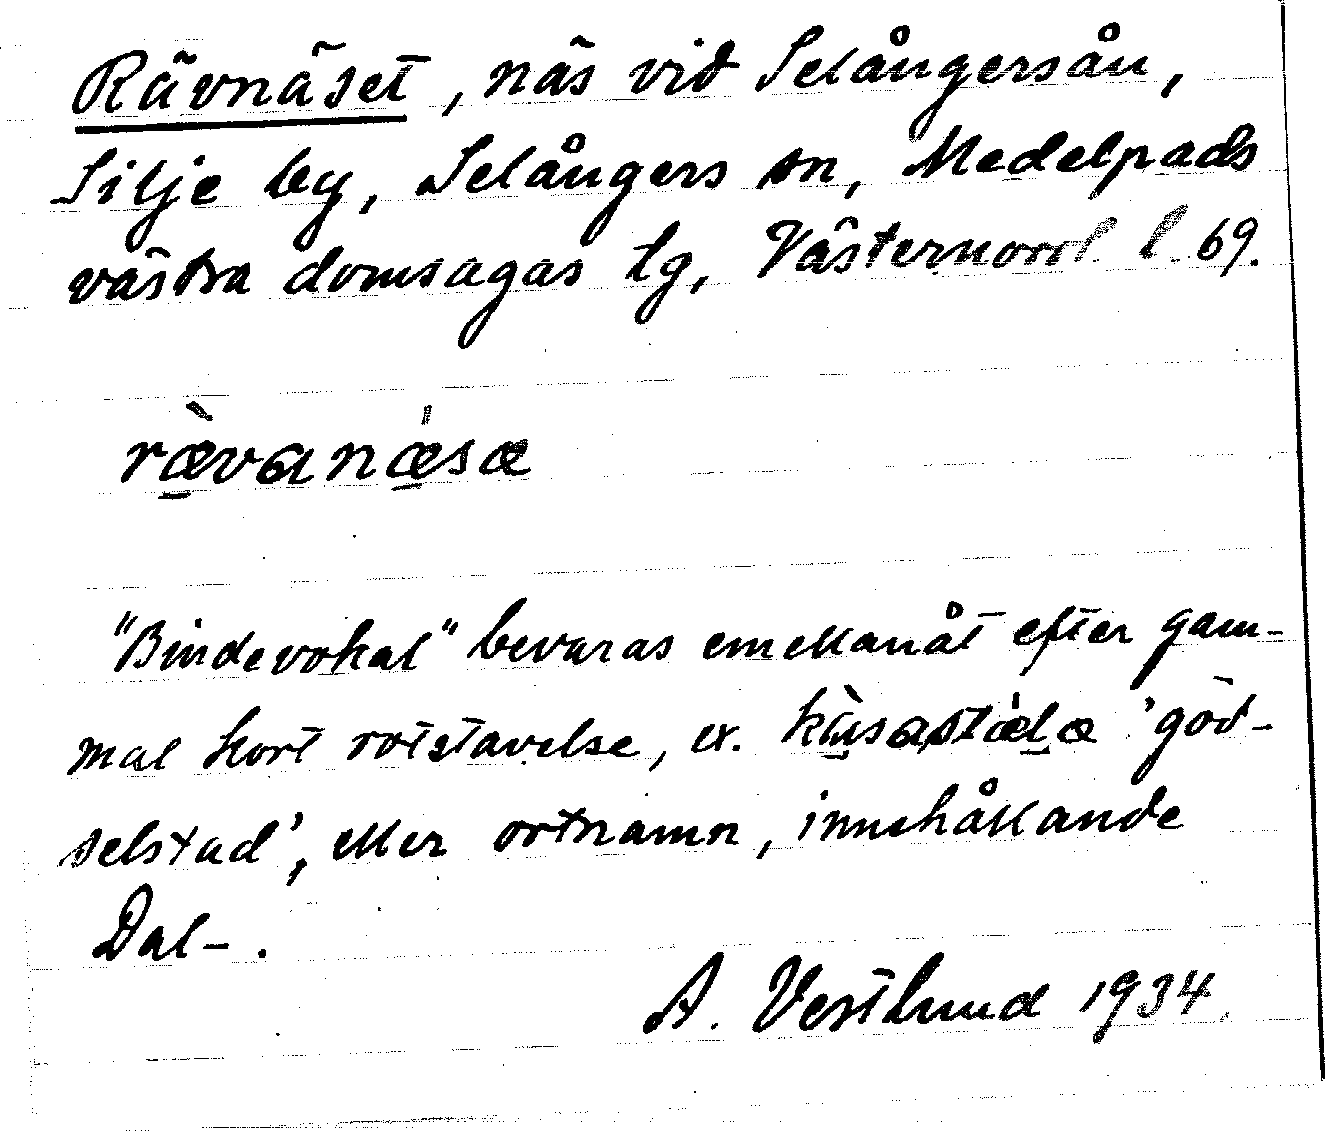 Rävnäset, näs vid Selångersån,
Silje by, Selångers sn, Medelpads
västra domsagas tg, Västernorrl l 69.
ræ̀vanæ̍sæ
"Bindevokal" bevaras emellanåt efter gam-
mal kort rotstavelse, ex. kùsastælæ 'göd-
selstad', eller ortnamn, innehållande
Dal-.
A. Vestlund 1934.